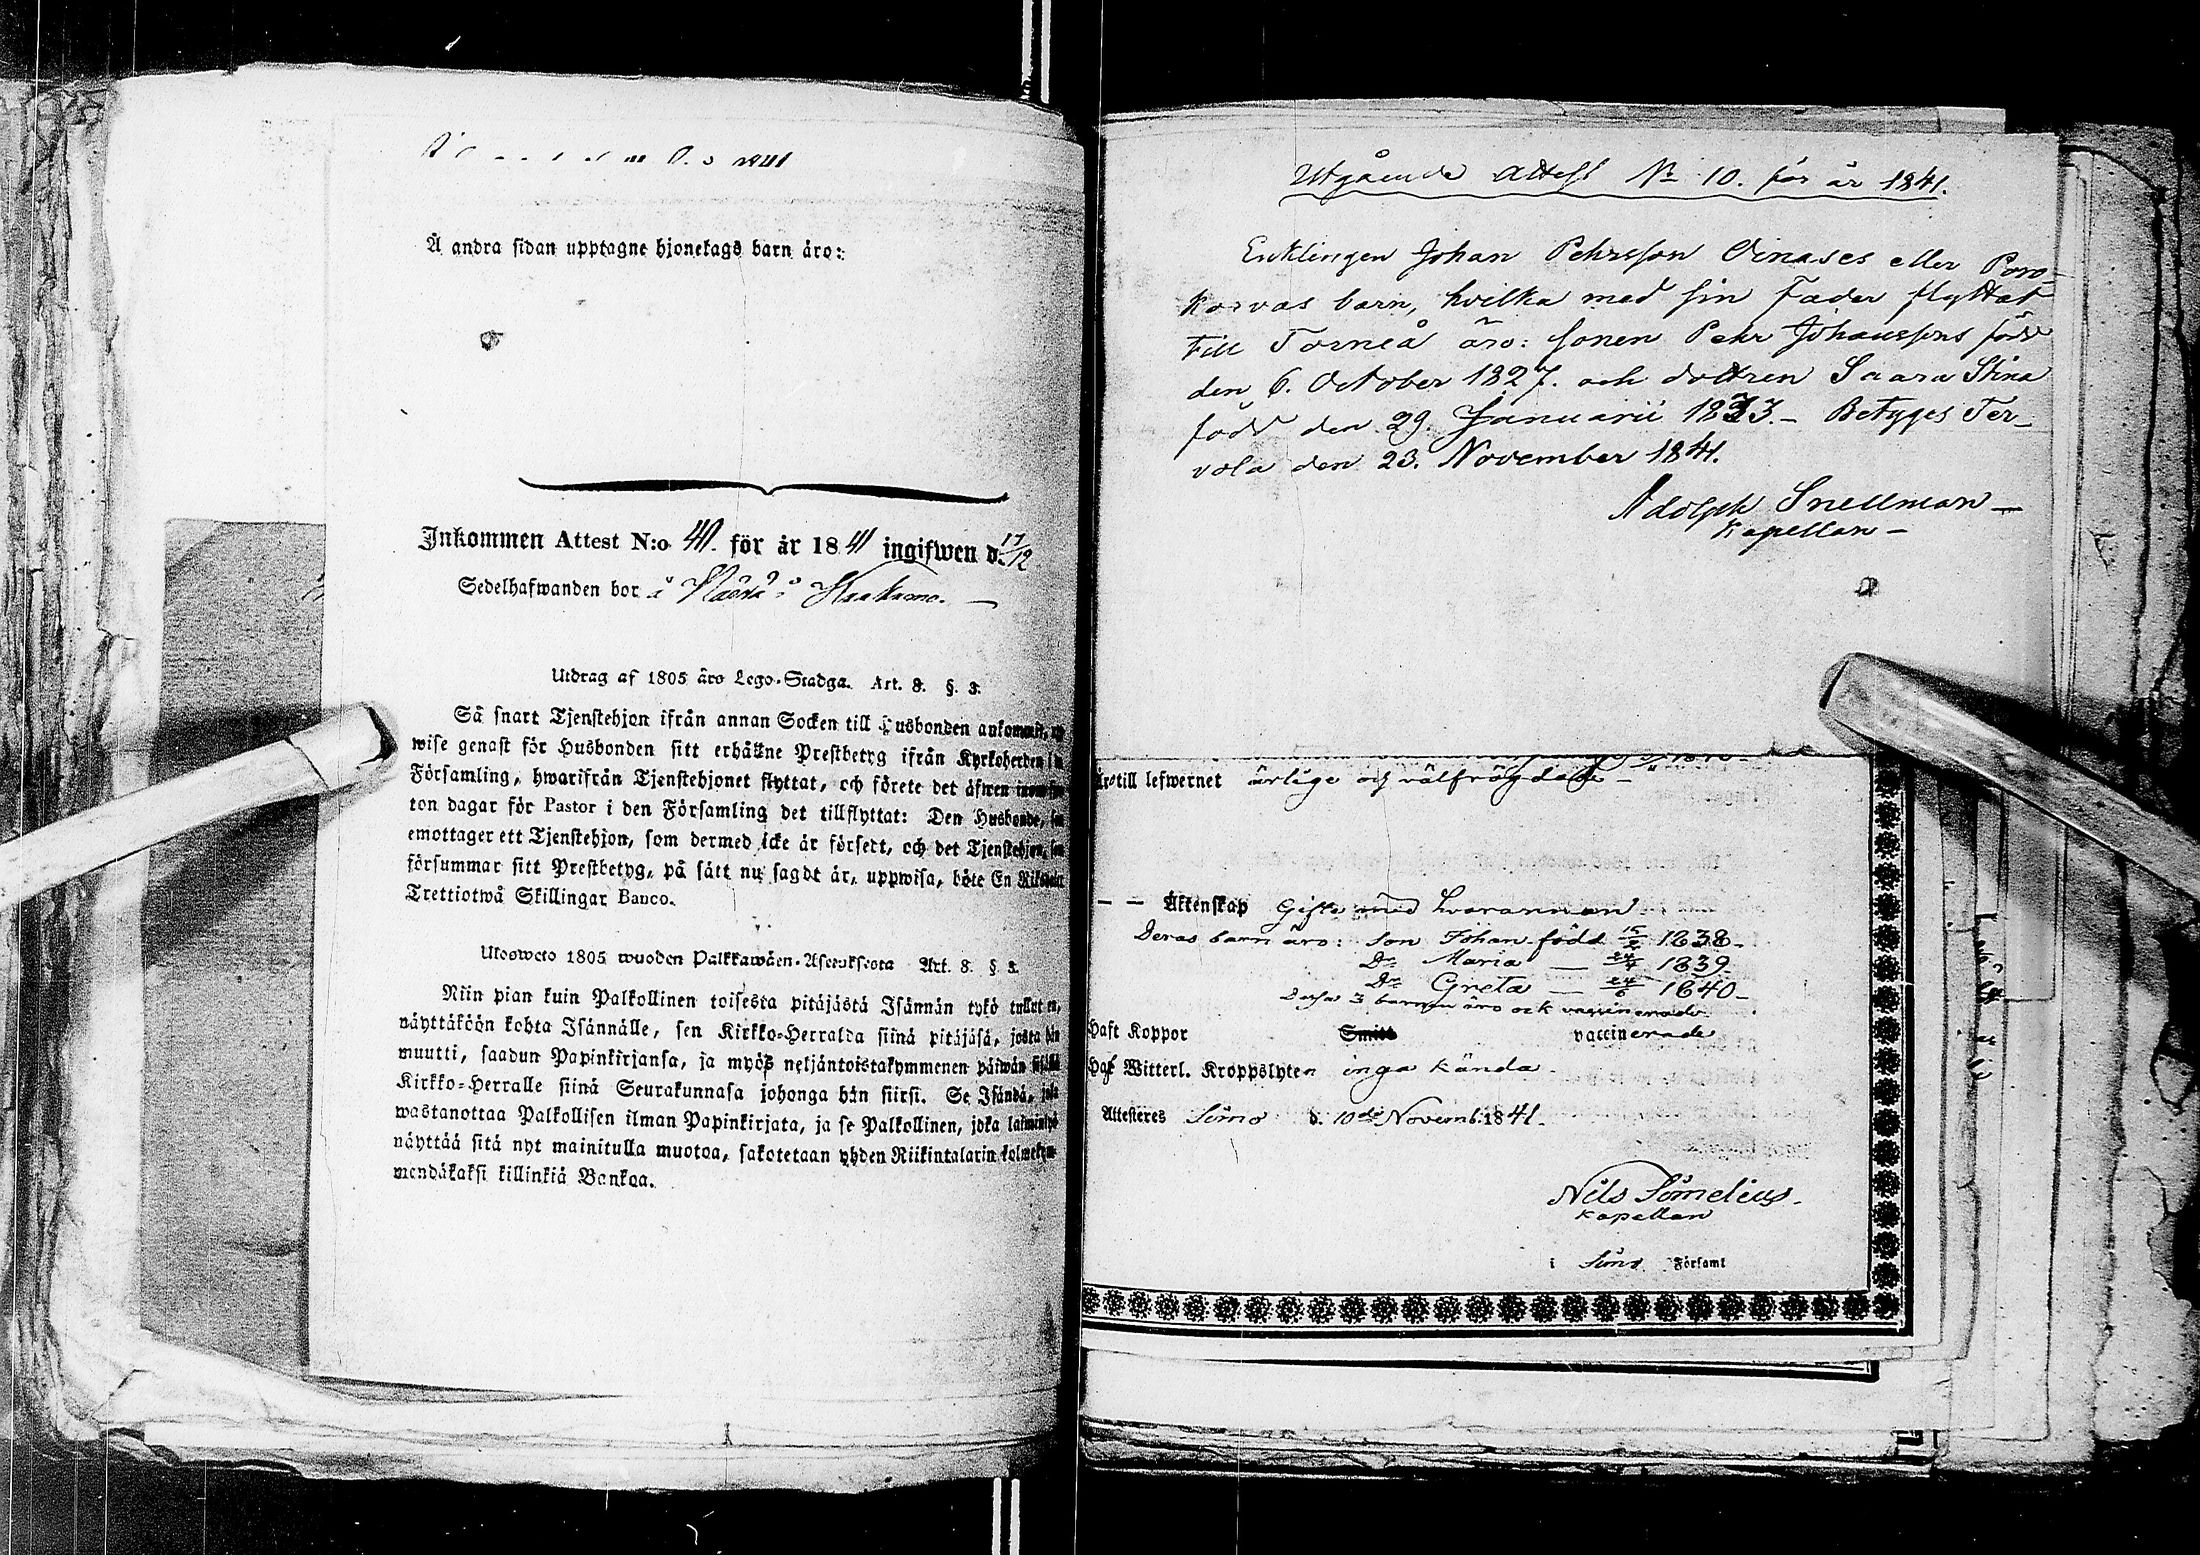 1841
Å andra sidan upptagne hjonelags barn äro:
Inkommen Attest N:o 40. för år 1841 ingifwen d. 17/12
Sedelhafwanden bor å Kaakamo. —
Utdrag af 1805 års Lego-Stadga. Art. 8. §. 3.
Så snart Tjenstehjon ifrån annan Socken till Husbonden ankommit,
wise genast för Husbonden sitt erhållne Prestbetyg ifrån Kyrkoherden i
Församling, hwarifrån Tjenstehjonet flyttat, och förete det äfwen inom
ton dagar för Pastor i den Församling det tillflyttat: Den Husbonde,
emottager ett Tjenstehjon, som dermed icke är försedt, och det Tjenstehjon,
försummar sitt Prestbetyg, på sätt nu sagdt är, uppwisa, böte En Riksdaler
Trettiotwå Skillingar Banco.
Ulosweto 1805 wuoden Palkkawäen-Asetuksesta Art. 8. §. 3.
Niin pian kuin Palkollinen toisesta pitäjästä Isännän tykö tullut on,
näyttäköön kohta Isännälle, sen Kirkko-Herralda siinä pitäjäsä, josta hän
muutti, saadun Papinkirjansa, ja myös neljäntoistakymmenen päiwän
Kirkko-Herralle siinä Seurakunnasa johonga hän siirsi. Se Isändä, joka
wastanottaa Palkollisen ilman Papinkirjata, ja se Palkollinen, joka
näyttää sitä nyt mainitulla muotoa, sakotetaan yhden Riikintalarin kolmekym-
mendäkaksi killinkiä Bankoa.
Utgående Attest No 10. för år 1841.
Enklingen Johan Pehrsson Oinases eller Poro-
korvas barn, hvilka med sin Fader flyttat
till Torneå äro: sonen Pehr Johansson född
den 6. October 1827. och dottren Saara Stina
född den 29. Januarii 1833. – Betyges Ter-
vola den 23. November 1841.
Adolph Snellman —
Kapellan —
till lefwernet ärlige och välfrägdade —
— — Äktenskap Gifte med hvarannan
Deras barn äro: Son Johan född 15/2 1838 –
Dr Maria — 1839
Dr Greta — 24/6 1840 –
Dessa 3 barnen äro ock vaccinerade.
Haft Koppor Smitt vaccinerade
Haf Witterl. Kroppslyten inga kända
Attesteres Simo d. 10de Novemb. 1841.
Nils Simelius.
Kapellan
i Simo Församl